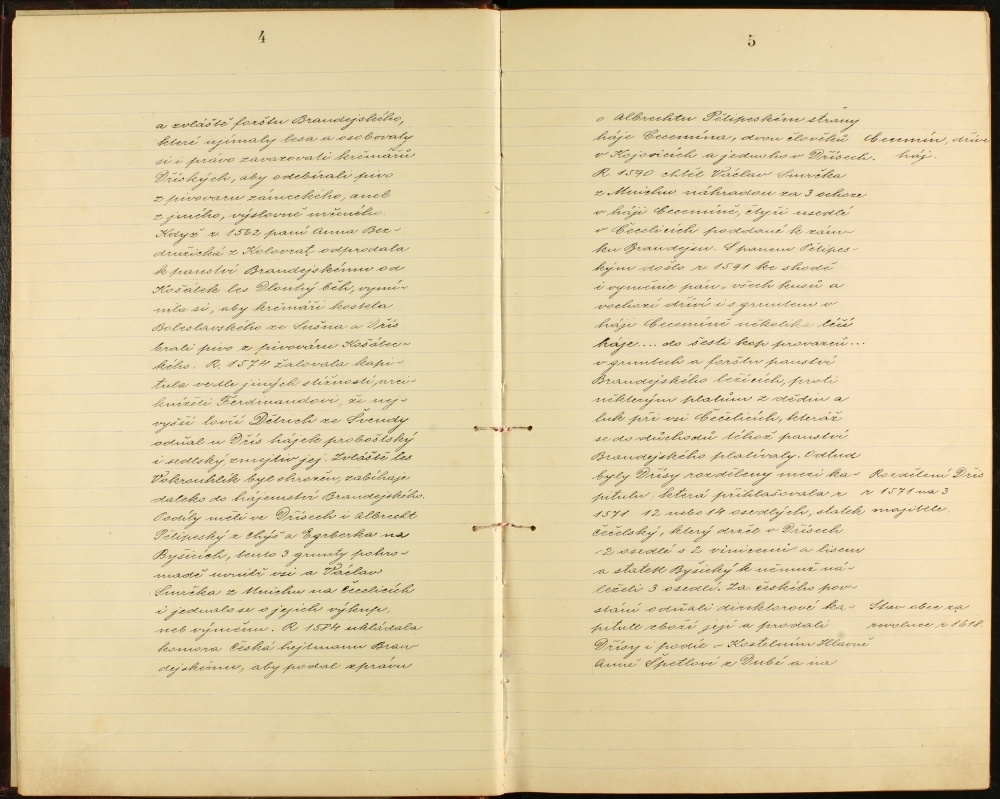 4
a zvláště forštu Brandejského,
které ujímaly lesa a osobovaly
si i právo zavazovati krčmářů
Dřískych, aby odebírali pivo
z pivovaru zámeckého, aneb
z jiného, výslovně určeného.
Když r. 1562 paní Anna Bez-
družická z Kolovrat, odprodala
k panství Brandejskému od
Košátek les Dlouhý běh, vymí-
nila si, aby krčmáři kostela
Boleslavského ze Sušna a Dřís
brali pivo z pivováru Košátec-
kého. R. 1574 žalovala kapi-
tula vedle jiných stížností, arci-
knížeti Ferdinandovi, že nej-
vyšší lovčí Dětrich ze Švendy
odňal u Dřís hájek proboštský
i sedlský, zmejtiv jej. Zvláště les
Vokrouhlík byl ohrožen, zabíhaje
daleko do hájemství Brandejského.
Podíly měli ve Dřísech i Albrecht
Pětipeský z Chýš a Egrberka na
Byšicích, tento 3 grunty pohro-
madě uvnitř vsi a Václav
Smrčka z Mnichu na Čečelicích
i jednalo se o jejich výkup,
neb výměnu. R 1584 ukládala
komora Česká hejtmanu Bran-
dejskému, aby podal zprávu
5
o Albrechtu Pětipeském strany
háje Cecemína, dvou člověků
v Kojovicích a jednoho v Dřísech.
Cecemín, dříve
háj.
R 1590 chtěl Václav Smrčka
z Mnichu náhradou za 3 ochoze
v háji Cecemíně, čtyři usedlé
v Čečelicích poddané k zám-
ku Brandejsu. S panem Pětipes-
kým došlo r 1591 ke shodě
i vyňaté pan. všech kusů a
vochozí dříví i s gruntem v
háji Cecemíně několika léčí
háje.... do šesti kop provazců...
v gruntech a forštu panství
Brandejského ležících, proti
některým platům z dědin a
luk při vsi Čečelicích, kteráž
se do důchodů téhož panství
Brandejského platívaly. Odtud
byly Dřísy rozděleny mezi ka-
pitulu, která přihlašovala r
1571 12 nebo 14 osedlých, statek
Rozdělení Dřís
r 1571 na 3
majitele.
Čečelský, který držel v Dřísech
2 osedlé s 2 vinicemi a lisem
a statek Byšický k němuž ná-
leželi 3 osedlí. Za českého pov-
stání odňali direktorové ka-
pitule zboží její a prodali
Stav obce za
revoluce r 1618.
Dřísy i podíl v Kostelním Hlavně
Anně Špetlové z Dubé a na